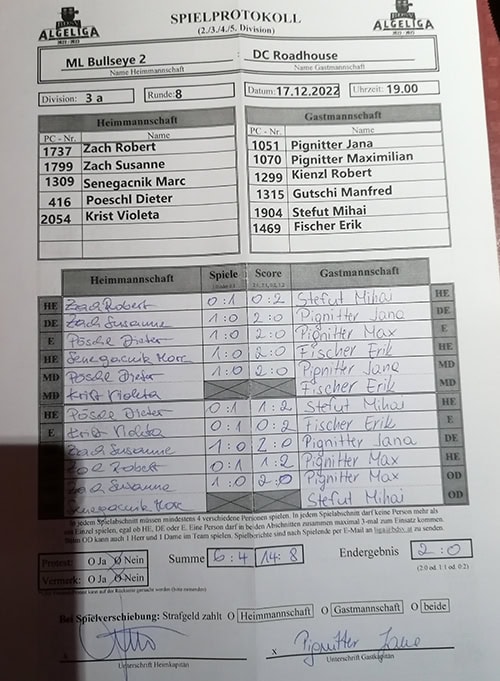 ALGELIGA
SPIELPROTOKOLL
(2./3./4./5. Division)
ALGELIGA
ML Bullseye 2
DC Roadhouse
Name Heimmannschaft
Name Gastmannschaft
Division: 3 a
Runde: 8
Datum: 17.12.2022
Uhrzeit: 19.00
Heimmannschaft
Gastmannschaft
PC - Nr. Name
PC - Nr. Name
1737 Zach Robert
1799 Zach Susanne
1309 Senegacnik Marc
416 Poeschl Dieter
2054 Krist Violeta
1051 Pignitter Jana
1070 Pignitter Maximilian
1299 Kienzl Robert
1315 Gutschi Manfred
1904 Stefut Mihai
1469 Fischer Erik
Heimmannschaft Spiele Score Gastmannschaft
HE Zach Robert 0:1 0:2 Stefut Mihai HE
DE Zach Susanne 1:0 2:0 Pignitter Jana DE
E Pöschl Dieter 1:0 2:0 Pignitter Max E
HE Senegacnik Marc 1:0 2:0 Fischer Erik HE
MD Pöschl Dieter 1:0 2:0 Pignitter Jana MD
MD Krist Violeta Fischer Erik MD
HE Pöschl Dieter 0:1 1:2 Stefut Mihai HE
E Krist Violeta 0:1 0:2 Fischer Erik E
Zach Susanne 1:0 2:0 Pignitter Jana DE
Zach Robert 0:1 1:2 Pignitter Max HE
Zach Susanne 1:0 2:0 Pignitter Max OD
Senegacnik Marc Stefut Mihai OD
In jedem Spielabschnitt müssen mindestens 4 verschiedene Personen spielen. In jedem Spielabschnitt darf keine Person mehr als
ein Einzel spielen, egal ob HE, DE oder E. Eine Person darf in beiden Abschnitten zusammen maximal 3-mal zum Einsatz kommen.
Beim OD kann auch 1 Herr und 1 Dame im Team spielen. Spielberichte sind nach Spielende per E-Mail an zu senden
Protest: O Ja O Nein
Summe 6:4 14:8
Endergebnis 2:0
Vermerk: O Ja O Nein
(2:0 od. 1:1 od. 0:2)
Bei Spielverschiebung: Strafgeld zahlt O Heimmannschaft O Gastmannschaft O beide
x Pignitter Jana
Unterschrift Heimkapitän
Unterschrift Gastkapitän